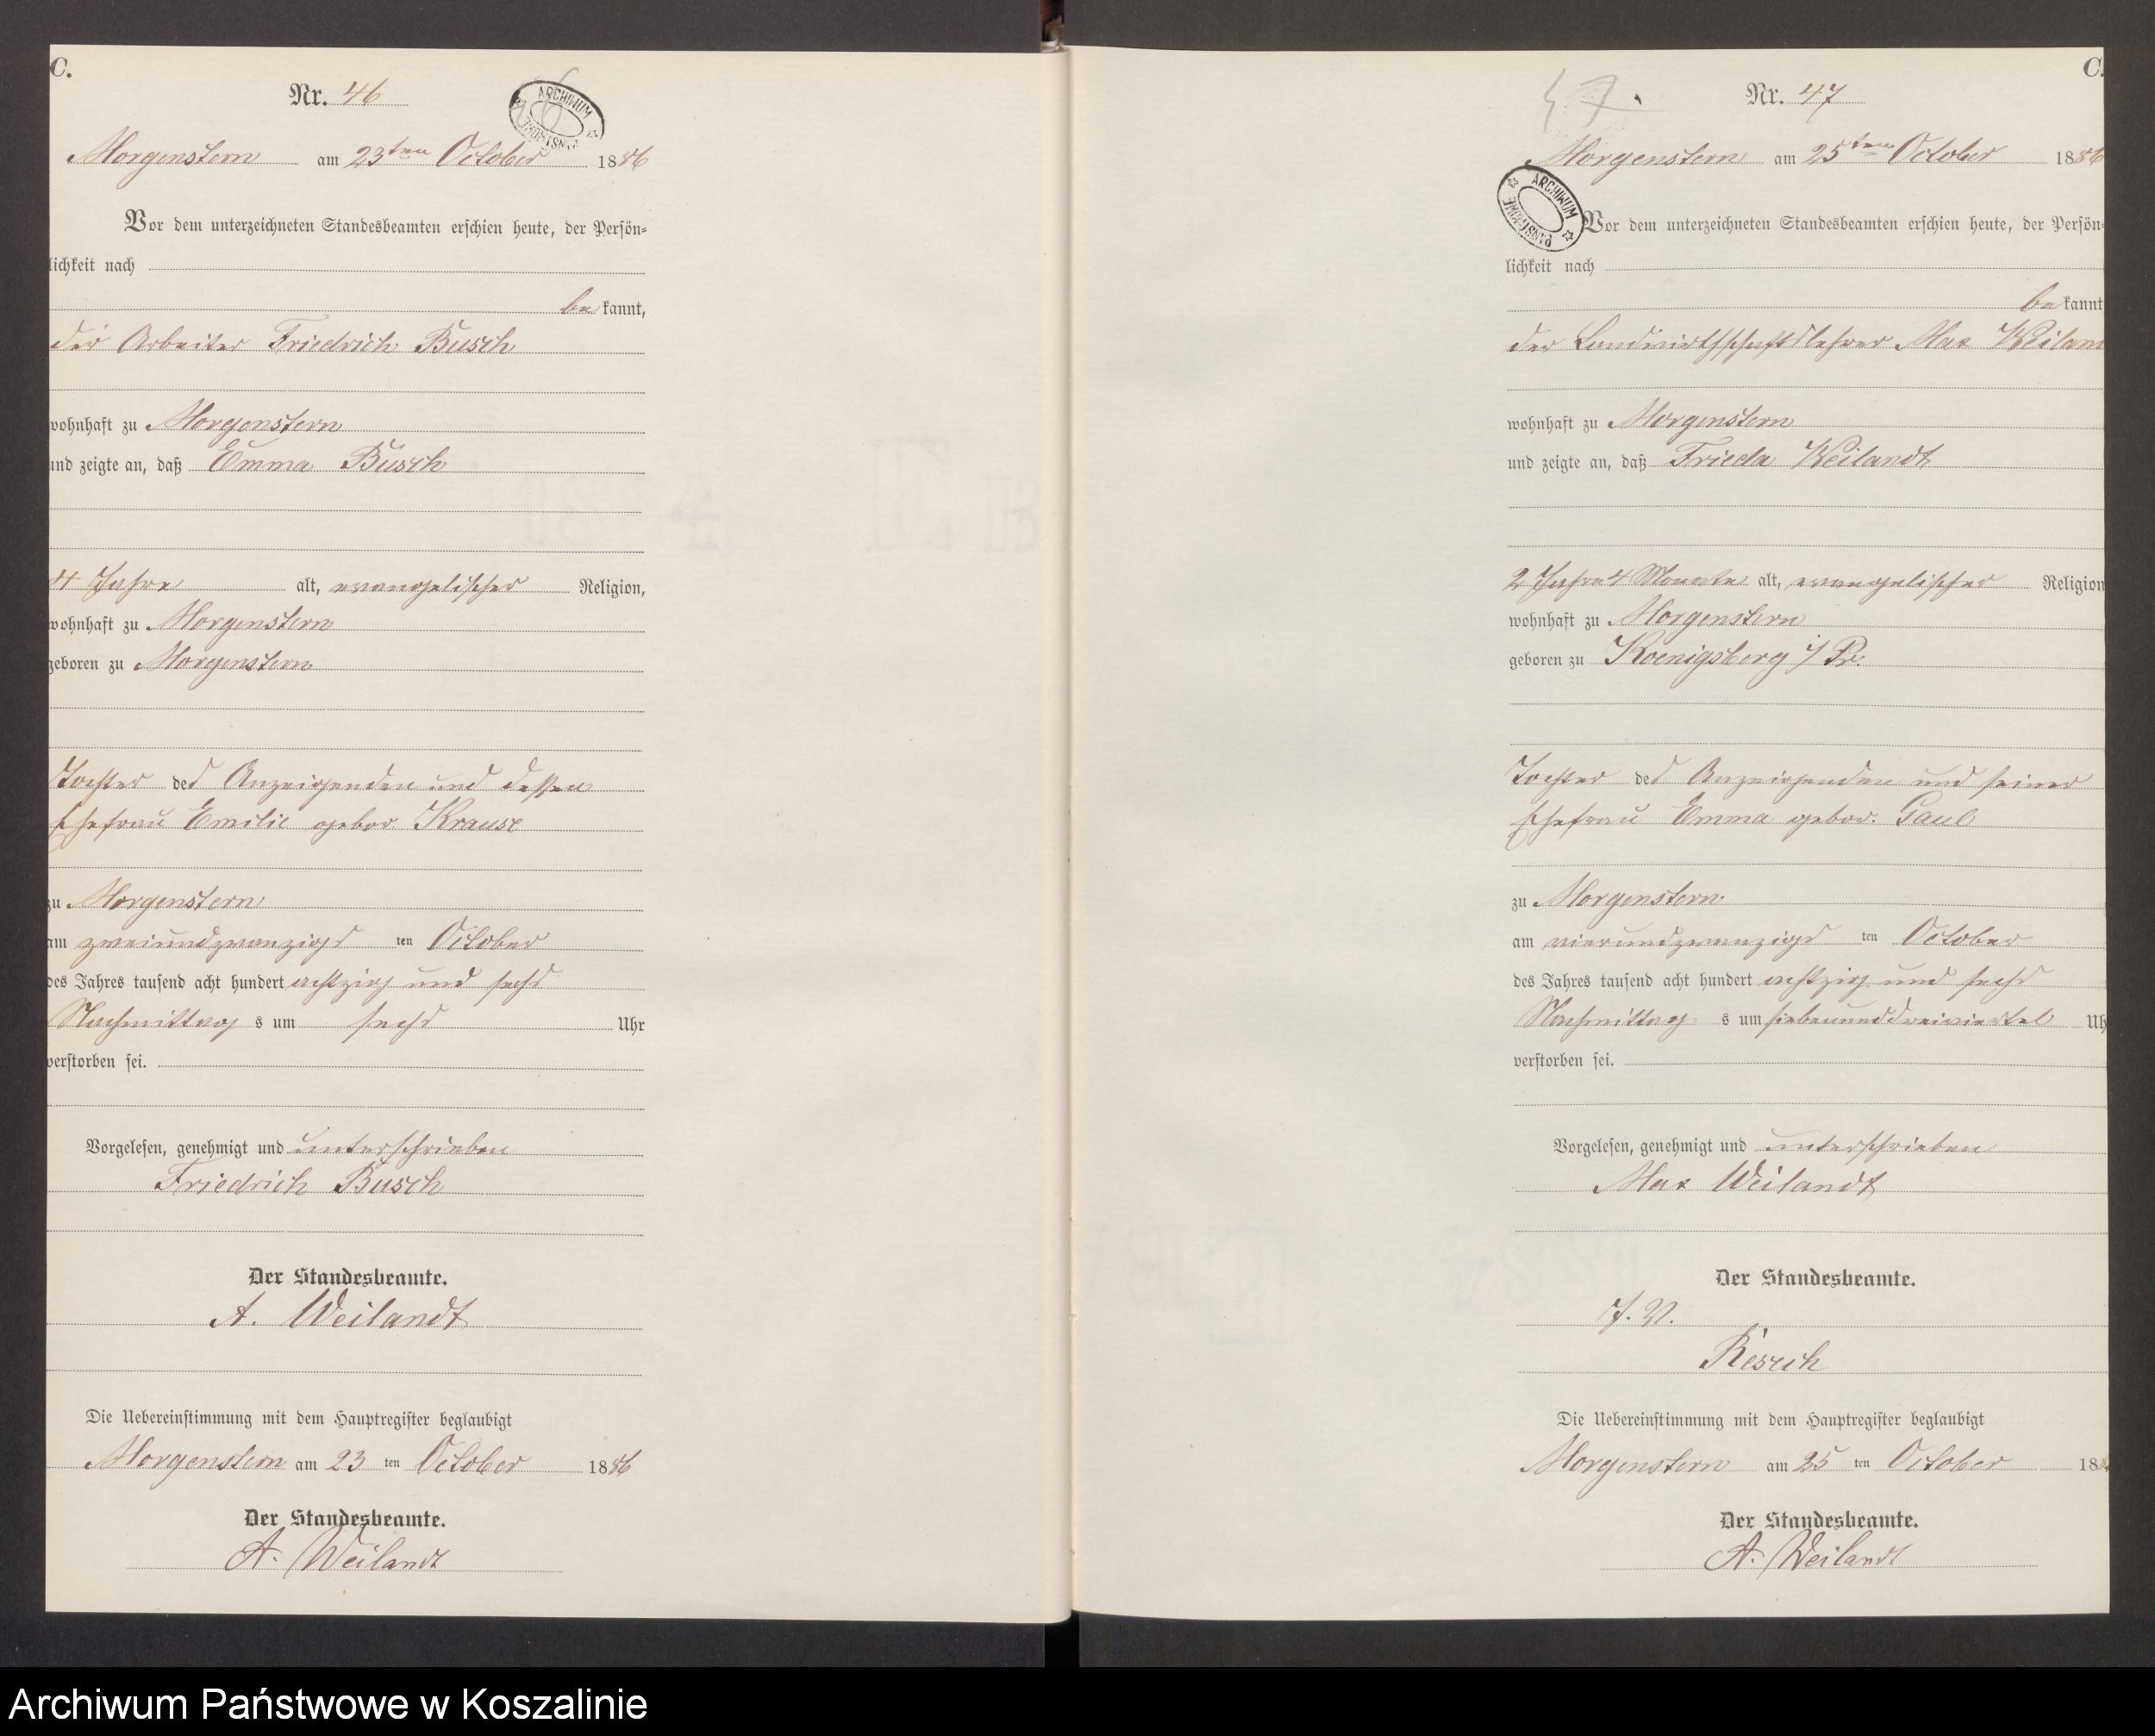 C.
Nr. 46
ARCHIWUM PAŃSTWOWE
Morgenstern am 23ten October 1886
Vor dem unterzeichneten Standesbeamten erschien heute, der Persön=
lichkeit nach
be kannt,
der Arbeiter Friedrich Busch
wohnhaft zu Morgenstern
und zeigte an, daß Emma Busch
4 Jahre alt, evangelischer Religion,
wohnhaft zu Morgenstern
geboren zu Morgenstern
Tochter des Anzeigenden und dessen
Ehefrau Emilie gebor. Krause
zu Morgenstern
am zweiundzwanzigs ten October
des Jahres tausend acht hundert achtzig und sechs
Nachmittag s um sechs Uhr
verstorben sei.
Vorgelesen, genehmigt und unterschrieben
Friedrich Busch
Der Standesbeamte.
A. Weilandt
Die Uebereinstimmung mit dem Hauptregister beglaubigt
Morgenstern am 23 ten October 1886
Der Standesbeamte.
A. Weilandt
C.
47.
Nr. 47
Morgenstern am 25ten October 1886
ARCHIWUM PAŃSTWOWE
Vor dem unterzeichneten Standesbeamten erschien heute, der Persön=
lichkeit nach
be kannt
der Landwirthschaftslehrer Max Weiland
wohnhaft zu Morgenstern
und zeigte an, daß Frieda Weilandt
2 Jahre 4 Monate alt, evangelischer Religion
wohnhaft zu Morgenstern
geboren zu Koenigsberg i/ Pr.
Tochter des Anzeigenden und seiner
Ehefrau Emma gebor. Gaul
zu Morgenstern
am vierundzwanzigs ten October
des Jahres tausend acht hundert achtzig und sechs
Nachmittag s um siebenunddreiviertel Uh
verstorben sei.
Vorgelesen, genehmigt und unterschrieben
Max Weilandt
Der Standesbeamte.
J. V.
Resech
Die Uebereinstimmung mit dem Hauptregister beglaubigt
Morgenstern am 25 ten October 188
Der Standesbeamte.
A. Weilandt
Archiwum Państwowe w Koszalinie